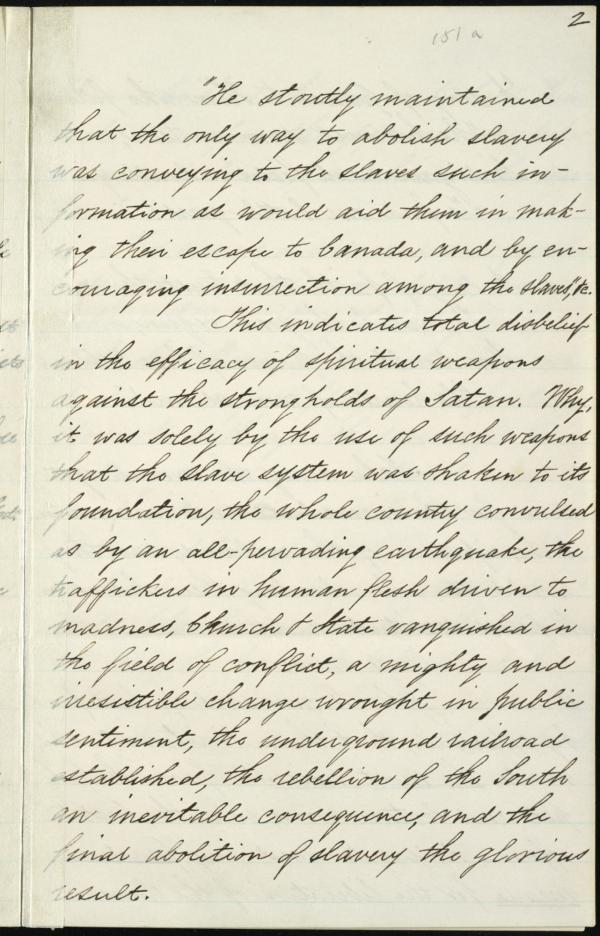 2
151 a
"He stoutly maintained
that the only way to abolish slavery
was conveying to the slaves such in-
formation as would aid them in mak-
ing their escape to Canada, and by en-
couraging insurrection among the slaves," &c.
This indicates total disbelief
in the efficacy of spiritual weapons
against the strongholds of Satan. Why,
it was solely by the use of such weapons
that the slave system was shaken to its
foundation, the whole country convulsed
as by an all-pervading earthquake, the
traffickers in human flesh driven to
madness, Church & State vanquished in
the field of conflict, a mighty and
irresistible change wrought in public
sentiment, the underground railroad
established, the rebellion of the South
an inevitable consequence, and the
final abolition of slavery the glorious
result.